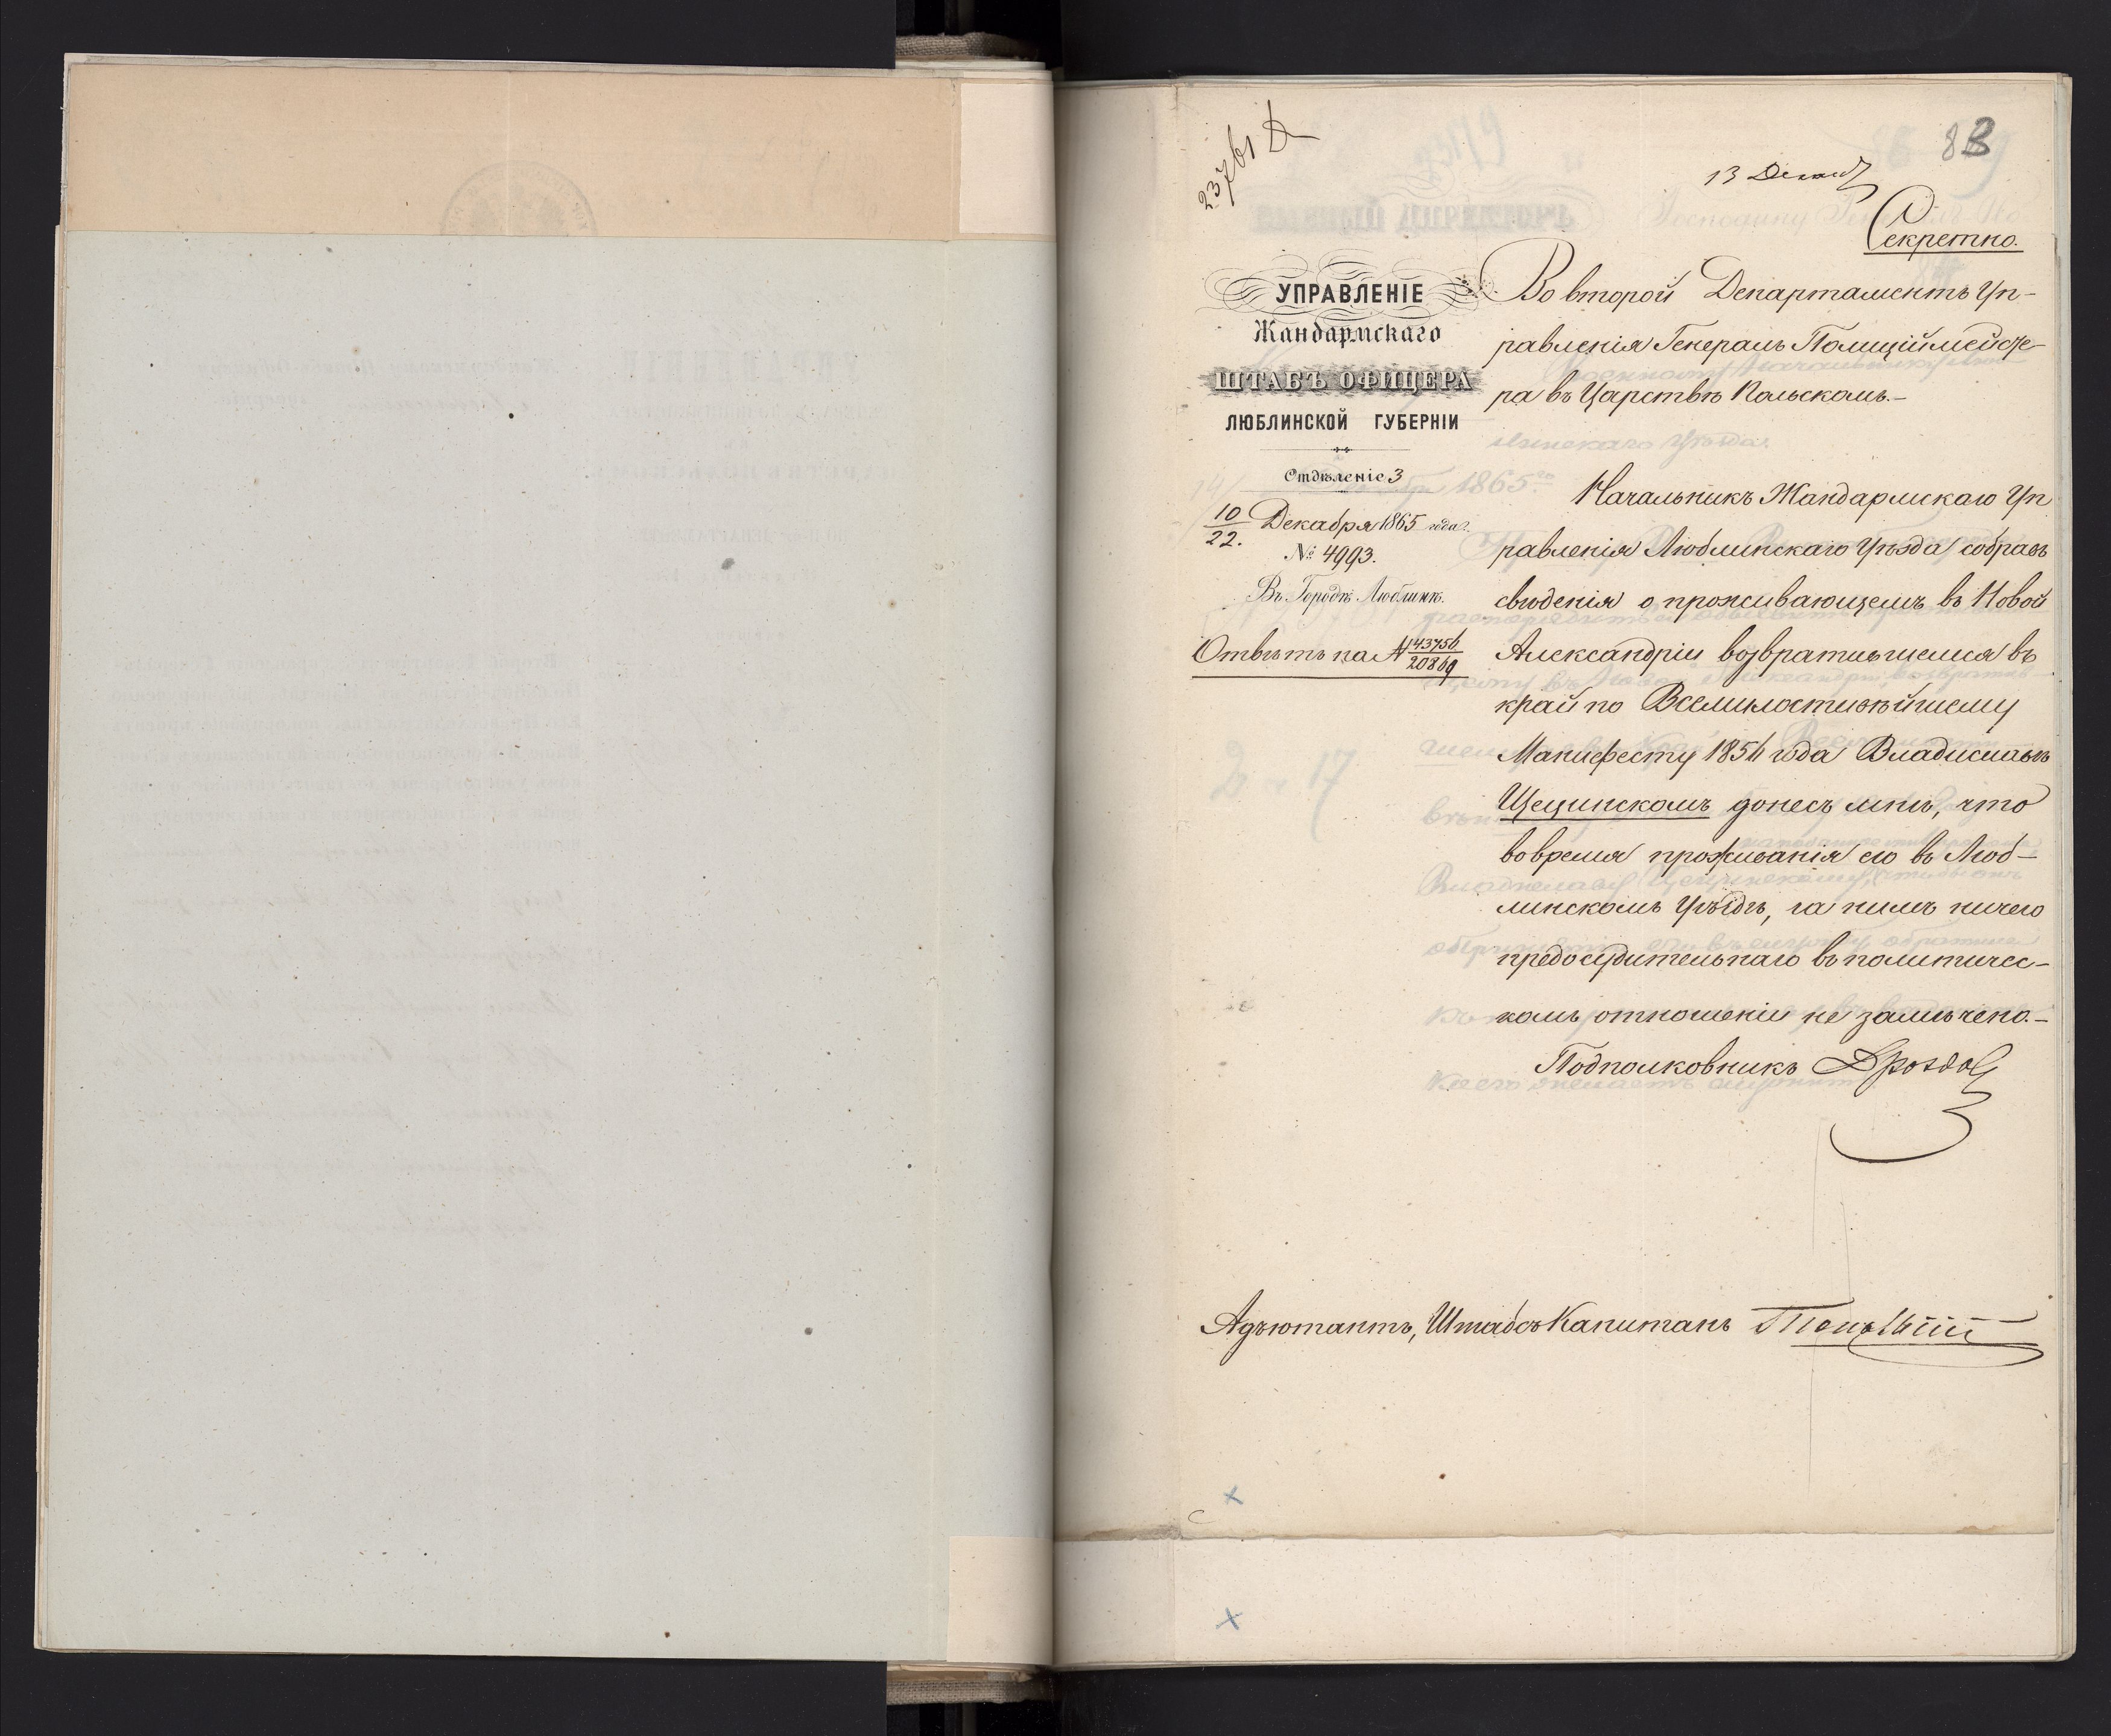 23761 D
83
13 Декаб
Секретно.
УПРАВЛЕНІЕ
Жандармскаго
ШТАБЪ ОФИЦЕРА
ЛЮБЛИНСКОЙ ГУБЕРНІИ
Отдѣленіе 3
10/22. Декабря 1865 года.
№ 4993.
Въ Городѣ Люблинѣ.
Отвѣтъ на № 43756/20869
Во второй Департаментъ Уп-
равленія Генералъ Полиціймейсте-
ра въ Царствѣ Польскомъ.-
Начальникъ Жандармскаго Уп
равленія Люблинскаго Уѣзда собравъ
свѣденія о проживающемъ въ Новой
Александріи возвратившемся въ
край по Всемилостивѣйшему
Манифесту 1856 года Владиславѣ
Щецинскомъ донесъ мнѣ, что
вовремя проживанія его въ Люб-
линскомъ Уѣздѣ, за нимъ ничего
предосудительнаго въ политичес-
комъ отношеніи не замѣчено.-
Подполковникъ Дроздов
Адъютантъ, Штабсъ Капитанъ